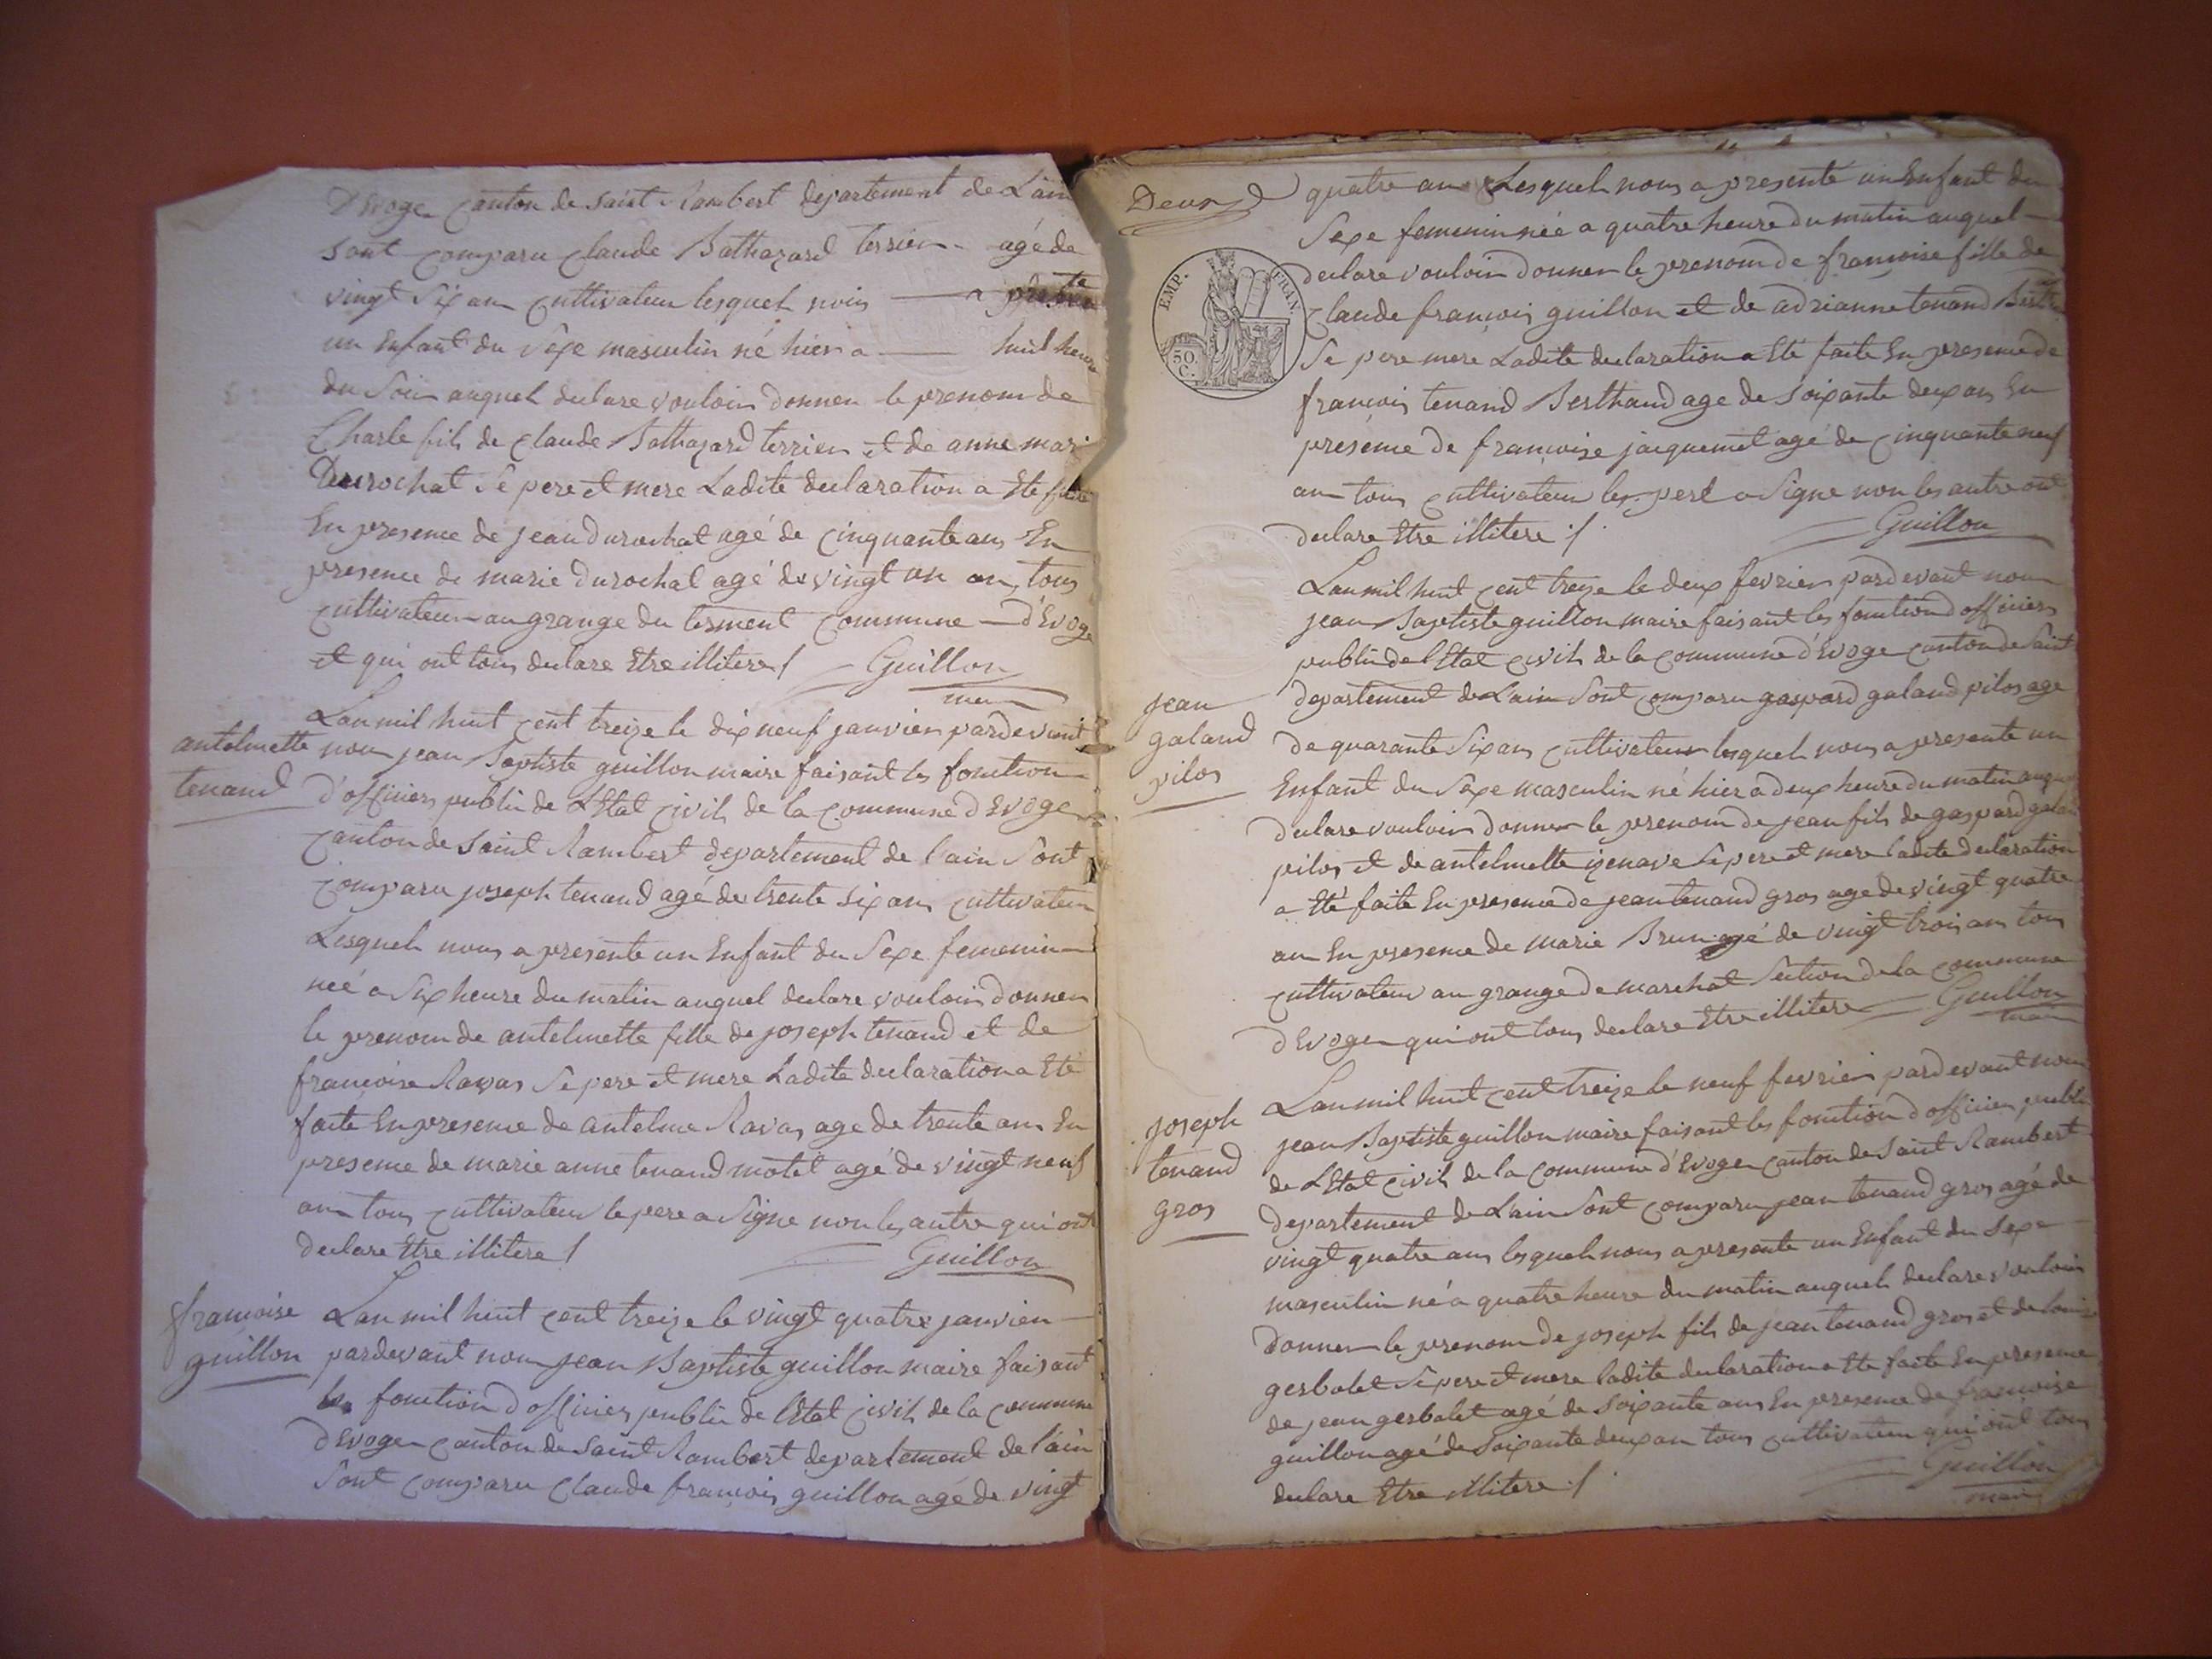 D'Evoge Canton de Saint Rambert departement de Lain
sont comparu Claude Balthazard terrier agé de
vingt Six an Cultivateur lesquel nous a
un Enfant du Sexe masculin né hier a huit heure
du Soir auquel declare vouloir donner le prenom de
Charle fils de Claude Balthazard terrier et de anne mari
Durochat Se pere et mere Ladite declaration a Eté faite
En presence de jean durochat agé de Cinquante ans En
presence de marie durochat agé de vingt un an, tous
Cultivateur au grange du terment Commune d'Evoge
et qui ont tous declare Etre illitere / Guillon
maire
antelmette
tenand
Lan mil huit Cent treize le dix neuf janvier pardevant
nous jean Baptiste guillon maire faisant les fonction
d'officier public de LEtat Civil de la Commune d'Evoge
Canton de Saint Rambert departement de l'ain Sont
Comparu joseph tenand agé de trente six ans Cultivateur
Lesquel nous a presente un Enfant du Sexe femenin
née a Six heure du matin auquel declare vouloir donner
le prenom de antelmette fille de joseph tenand et de
françoise Ravas Se pere et mere Ladite declaration a Eté
faite En presence de antelme Ravas age de trente ans En
presence de marie anne tenand motet agé de vingt neuf
ans tous Cultivateur le pere a Signe non les autre qui ont
declare Etre illitere / Guillon
françoise
guillon
Lan mil huit Cent treize le vingt quatre janvier
pardevant nous jean Baptiste guillon maire faisant
les fonction d'officier public de lEtat Civil de la Commune
d'Evoge Canton de Saint Rambert departement de l'ain
Sont Comparu Claude françois guillon agé de vingt
Deux
quatre ans Lesquel nous a presenté un Enfant du
Sexe femenin née a quatre heure du matin auquel
declare vouloir donner le prenom de françoise fille de
Claude françois guillon et de adrianne tenand
Se pere mere Ladite declaration a Eté faite En presence de
françois tenand Berthaud age de Soixante deux ans En
presence de françoise jacquemet agé de Cinquante neuf
ans tous Cultivateur les pere a Signe non les autre ont
declare Etre illitere / Guillon
EMP. FRAN.
50.
C.
jean
galand
pilos
Lan mil huit Cent treize le deux fevrier pardevant nous
jean Baptiste guillon maire faisant les fonction d'officier
public de lEtat Civil de la Commune d'Evoge Canton de Saint
departement de Lain Sont Comparu gaspard galand pilos age
de quarante Six ans Cultivateur lesquel nous a presente un
Enfant du Sexe masculin né hier a deux heure du matin auquel
declare vouloir donner le prenom de jean fils de gaspard galand
pilos et de antelmette izenave Se pere et mere ladite declaration
a Eté faite En presence de jean tenand gros age de vingt quatre
ans En presence de marie Brun agé de vingt trois ans tous
Cultivateur au grange de marchat Section de la Commune
d'Evoge qui ont tous declare Etre illitere Guillon
maire
joseph
tenand
gros
Lan mil huit Cent treize le neuf fevrier pardevant nous
jean Baptiste guillon maire faisant les fonction d'officier public
de LEtat Civil de la Commune d'Evoge Canton de Saint Rambert
departement de Lain Sont Comparu jean tenand gros agé de
vingt quatre ans lesquel nous a presente un Enfant du Sexe
masculin né a quatre heure du matin auquel declare vouloir
donner le prenom de joseph fils de jean tenand gros et de louise
gesbalet Se pere et mere ladite declaration a Eté faite En presence
de jean gesbalet agé de Soixante ans En presence de françoise
guillon agé de Soixante deux an tous Cultivateur qui ont tous
declare Etre illitere / Guillon
maire